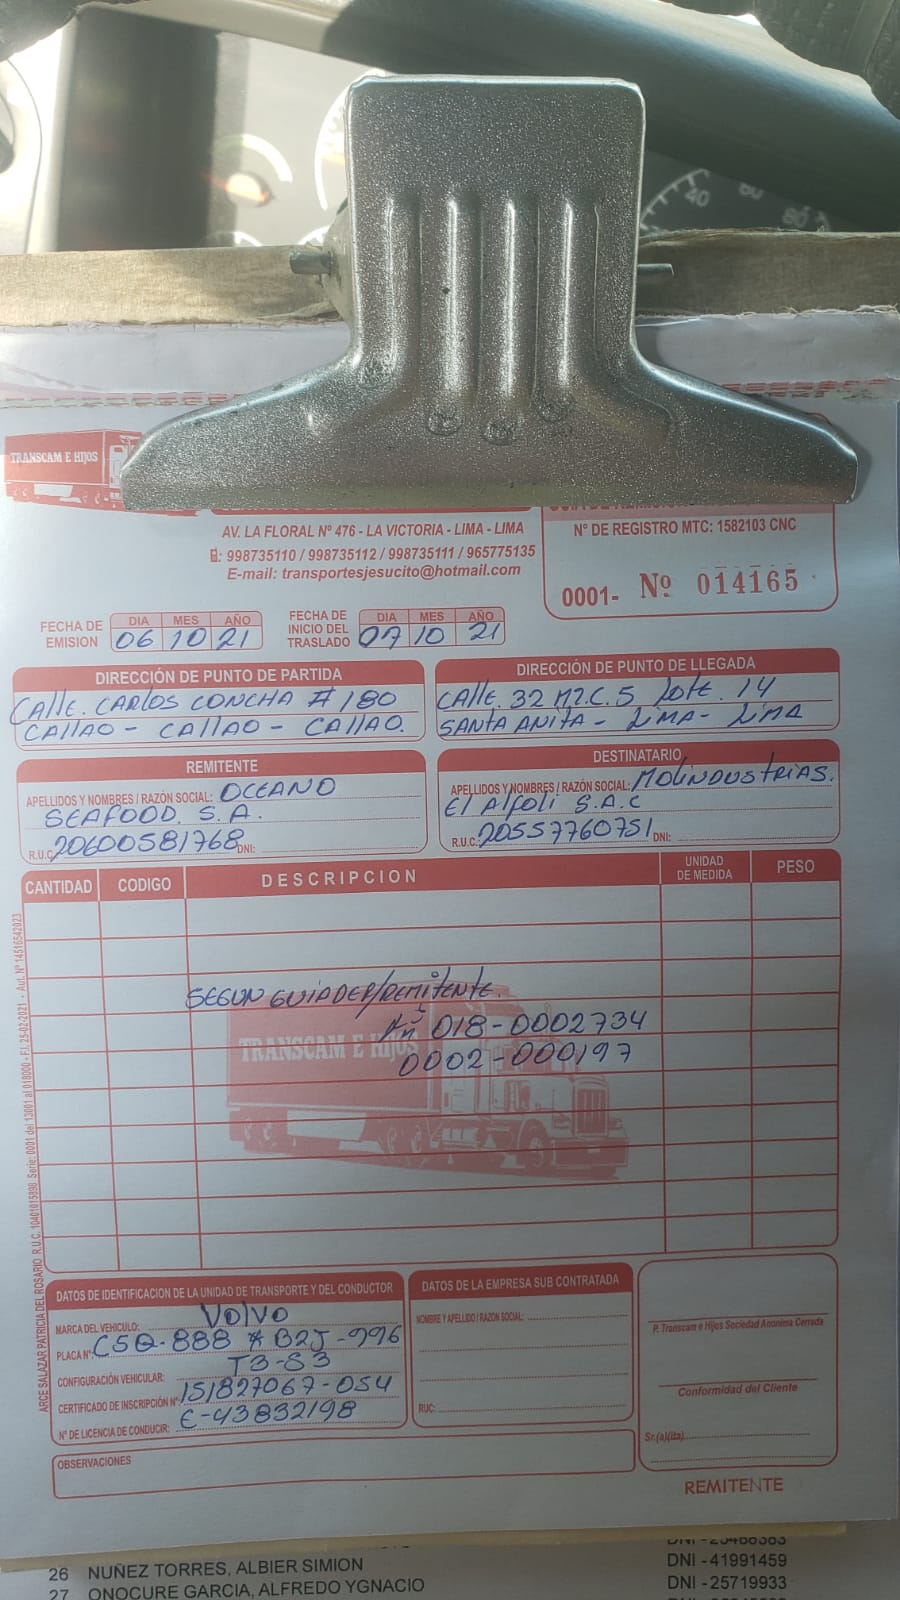 TRANSCAM E HIJOS
AV. LA FLORAL Nº 476 - LA VICTORIA - LIMA - LIMA
: 998735110 / 998735112 / 998735111 / 965775135
E-mail: transportesjesucito@hotmail.com
Nº DE REGISTRO MTC: 1582103 CNC
0001- Nº 014165
FECHA DE EMISION
DIA MES AÑO
06 10 21
FECHA DE INICIO DEL TRASLADO
DIA MES AÑO
07 10 21
DIRECCIÓN DE PUNTO DE PARTIDA
CAlle. CARlos CONCHA # 180
CAllAO - CAllAO - CAllAO.
DIRECCIÓN DE PUNTO DE LLEGADA
CAlle. 32 MZ.C.5 lote. 14
SANTA ANITA - LIMA - LIMA
REMITENTE
APELLIDOS Y NOMBRES / RAZÓN SOCIAL: OCEANO
SEAFOOD. S.A.
R.U.C. 20600581768 DNI:
DESTINATARIO
APELLIDOS Y NOMBRES / RAZON SOCIAL: Molindustrias.
El Alfoli S.A.C
R.U.C. 20557760751 DNI:
CANTIDAD CODIGO DESCRIPCION UNIDAD DE MEDIDA PESO
SEGUN GUIA DER/REMITENTE.
018-0002734
TRANSCAM E HIJOS
0002-000197
ARCE SALAZAR PATRICIA DEL ROSARIO R.U.C. 10401015898 Serie: 0001 del 13001 al 018000 - F.I. 25-02-2021 - Aut. Nº 14516542023
DATOS DE IDENTIFICACION DE LA UNIDAD DE TRANSPORTE Y DEL CONDUCTOR
MARCA DEL VEHICULO: VOlVO
PLACA Nº: C5Q-888 * B2J-996
CONFIGURACIÓN VEHICULAR: T3-S3
CERTIFICADO DE INSCRIPCIÓN Nº: 151827067-054
Nº DE LICENCIA DE CONDUCIR: E-43832198
DATOS DE LA EMPRESA SUB CONTRATADA
NOMBRE Y APELLIDO / RAZON SOCIAL:
RUC:
P. Transcam e Hijos Sociedad Anonima Cerrada
Conformidad del Cliente
Sr.(a)(ita)
OBSERVACIONES
REMITENTE
26 NUÑEZ TORRES, ALBIER SIMION DNI -41991459
27 ONOCURE GARCIA, ALFREDO YGNACIO DNI -25719933